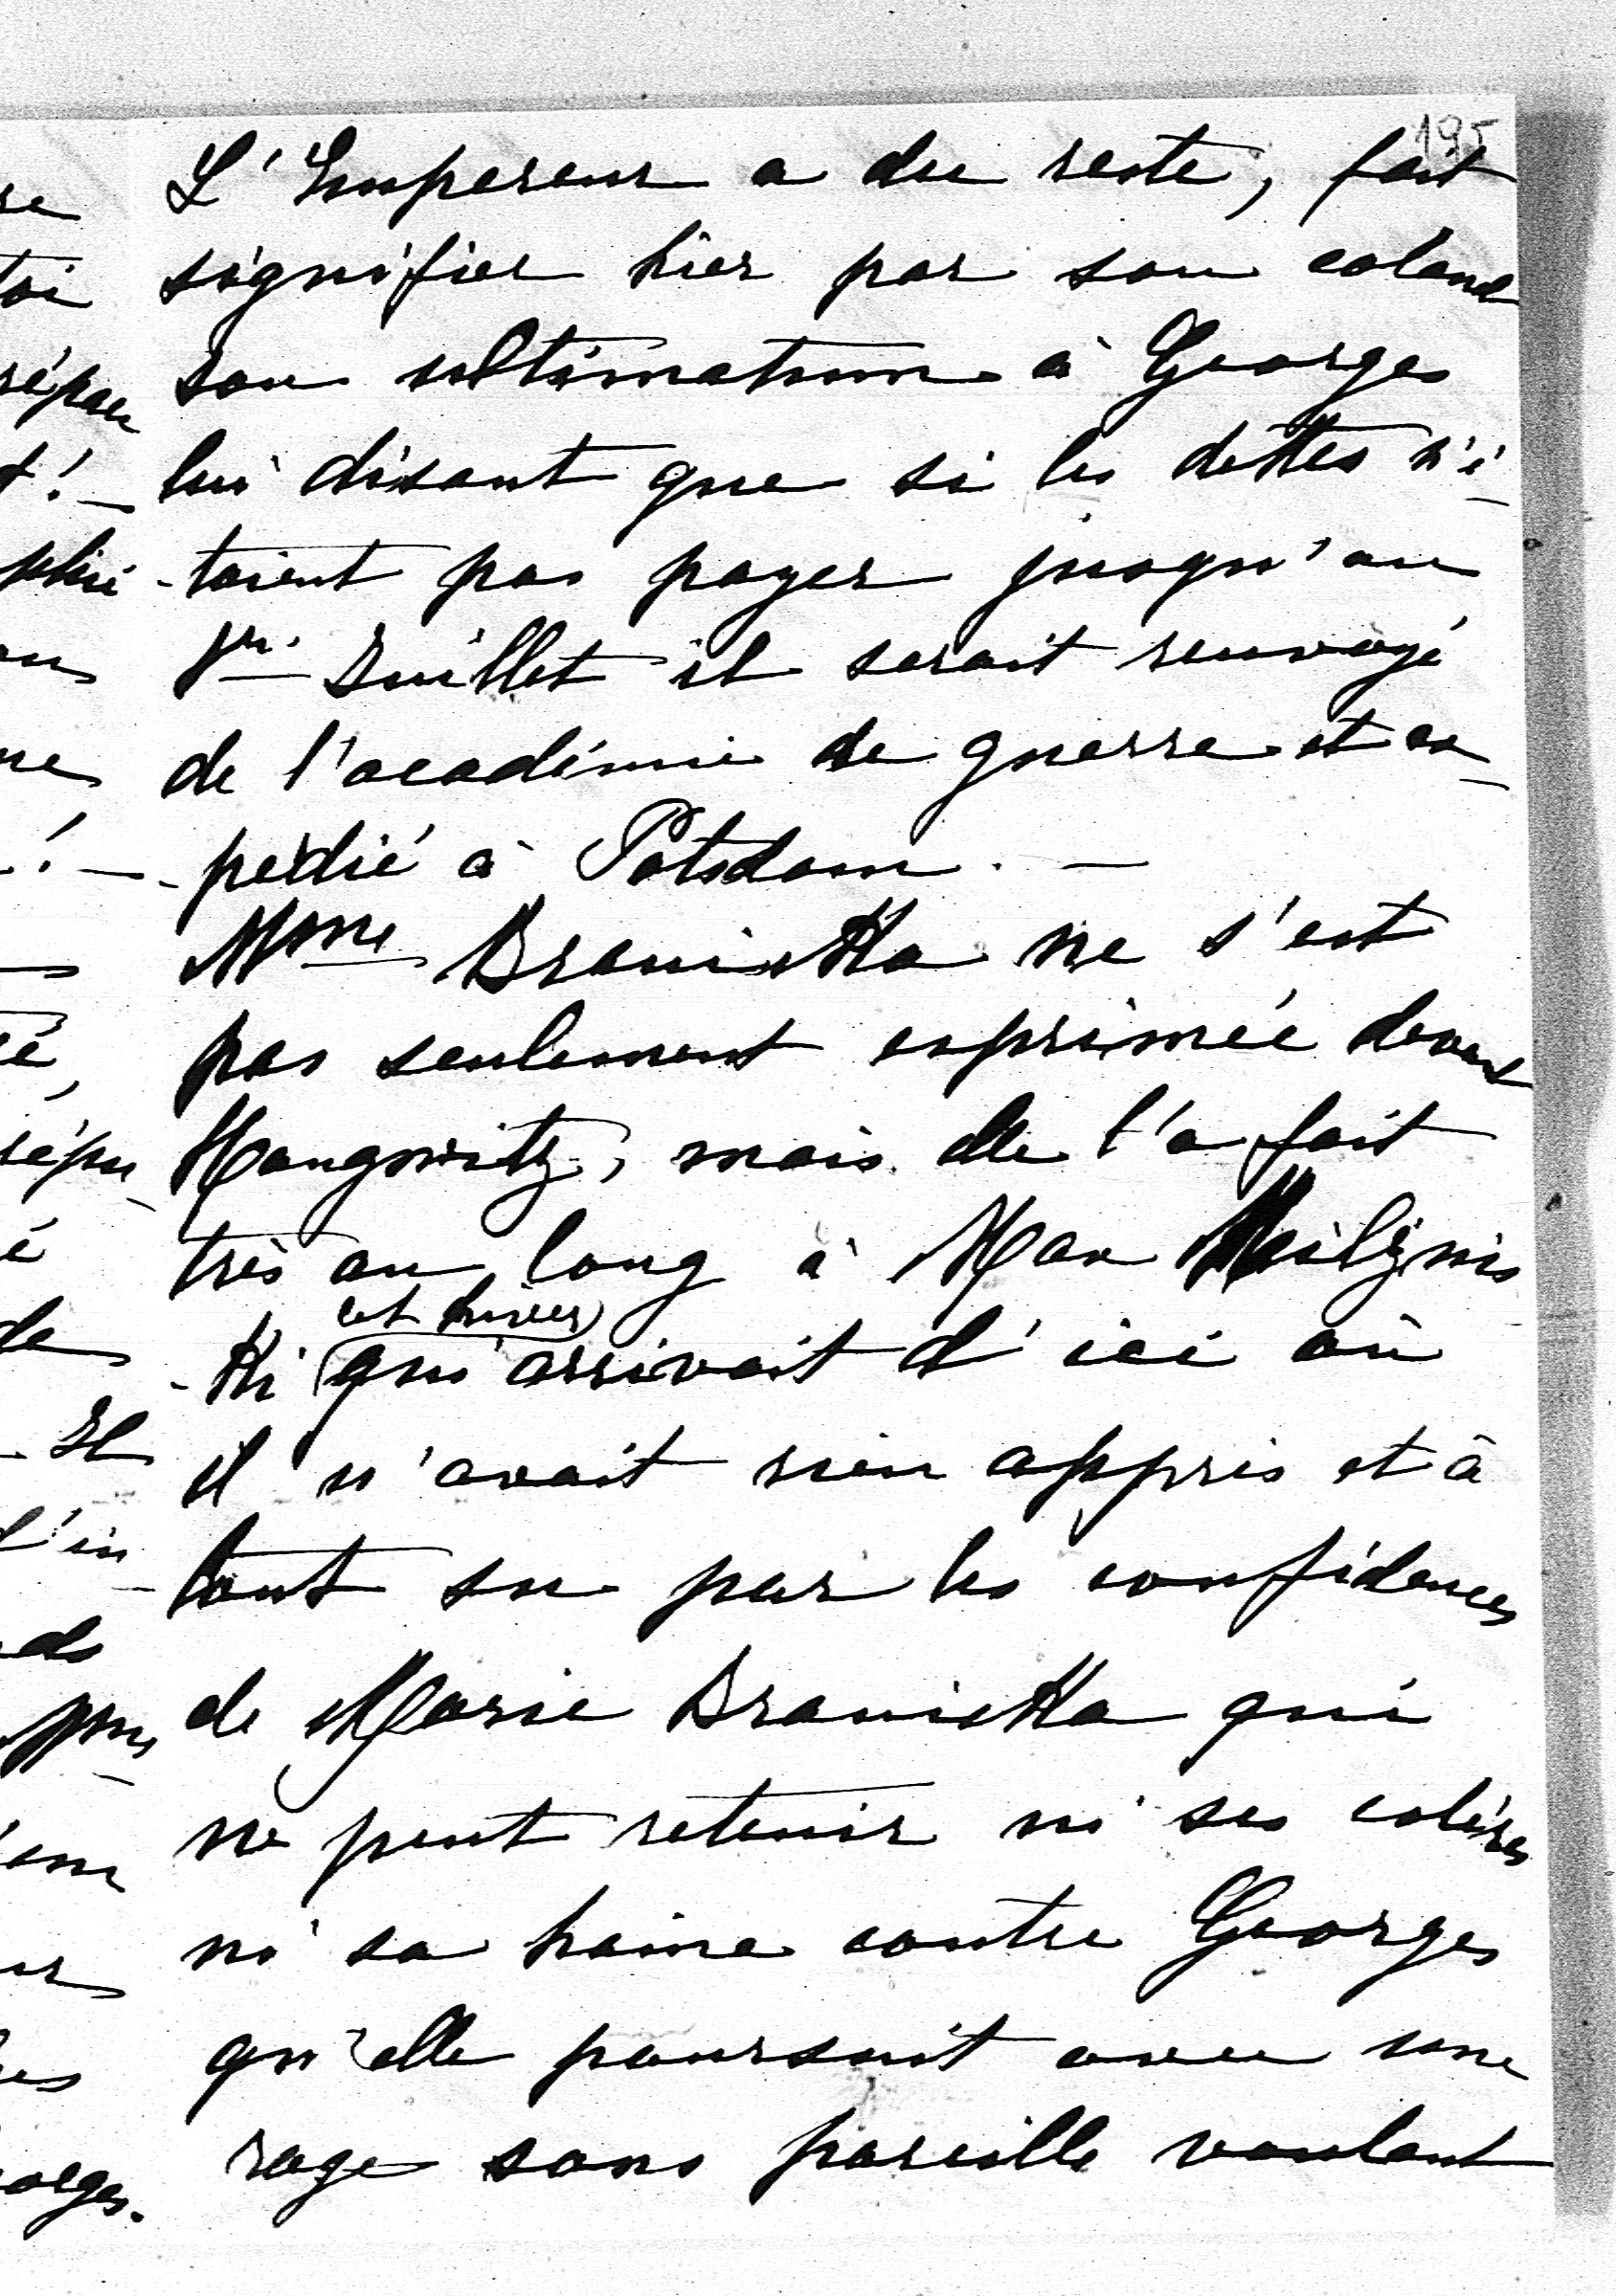 195
L'Empereur a du reste, fait
signifier hier par son colonel
son ultimatum à Georges
lui disant que si les dettes n'é-
-taient pas payer jusqu'au
1er Juillet il serait renvoyé
de l'académie de guerre et ex-
-pedié à Potsdam. —
Mme Branicka ne s'est
pas seulement exprimée devant
Haugwitz, mais elle l'a fait
très au long à Max Mielzyńs
-ki (cet hiver) qui arrivait d'ici où
il n'avait rien appris et à
tout su par les confidences
de Marie Branicka qui
ne peut retenir ni ses colères
ni sa haine contre Georges
qu'elle poursuit avec une
rage sans pareille voulant